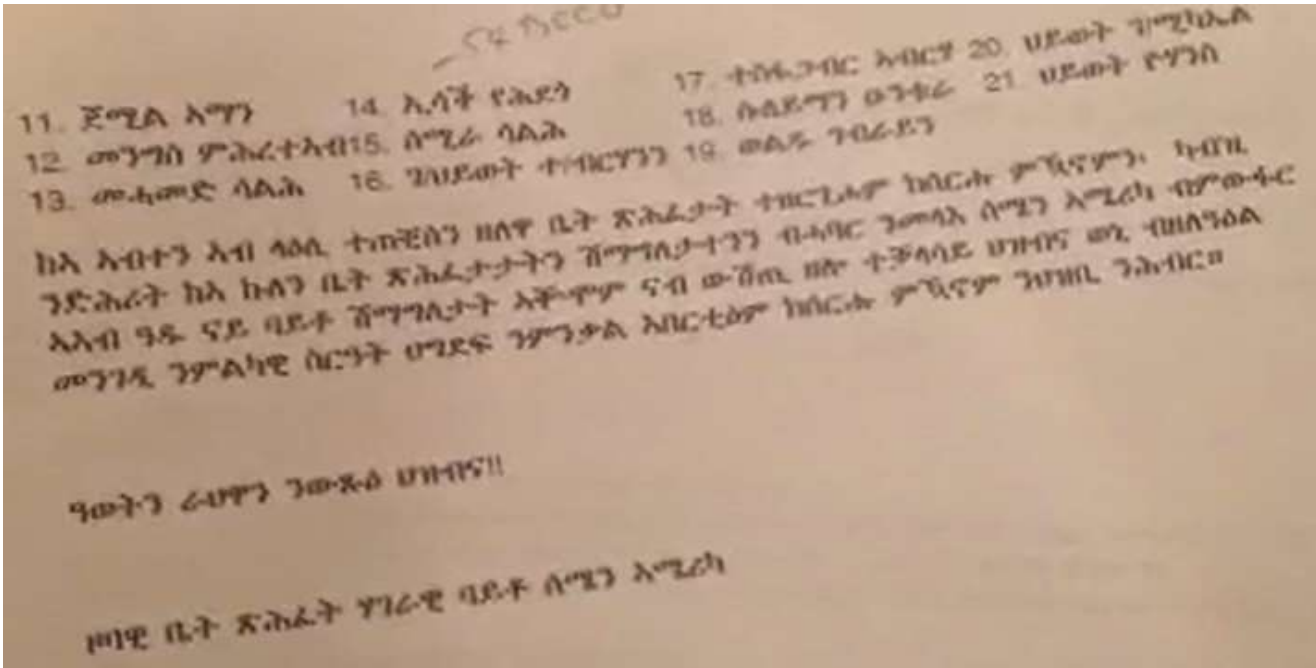 11. ጀሚል ኣማን 14. ኢሳች የሕደጎ 17. ተስፋጋብር ኣብርሃ 20. ህይወት ገ/ሚካኤል
12. መንግስ ምሕረተኣብ 15. ሰሚራ ሳልሕ 18. ሱልይማን ዑንቁራ 21. ህይወት ዮሃንስ
13. መሓመድ ሳልሕ 16. ገ/ህይወት ተ/ብርሃንን 19. ወልዱ ገብራይን
ከኣ ኣብተን ኣብ ላዕሊ ተጠቒሰን ዘለዋ ቤት ጽሕፈታት ተዘርጊሖም ከሰርሑ ምዃኖምን፡ ካብዚ
ንድሕሪት ከኣ ኩለን ቤት ጽሕፈታታትን ሽማግለታተንን ብሓባር ንመላእ ሰሜን ኣሜሪካ ብምውፋር
ኣእብ ዓዱ ናይ ባይቶ ሽማግሌታት ኣቑሞም ናብ ውሽጢ ዘሎ ተቓላሳይ ህዝብና ወኒ ብዘለዓዕል
መንገዲ ንምልካዊ ስርዓት ህግደፍ ንምንቃል ኣበርቲዖም ከሰርሑ ምዃኖም ንህዝቢ ንሕብር።
ዓወትን ራህዋን ንውጹዕ ህዝብና!!
ዞባዊ ቤት ጽሕፈት ሃገራዊ ባይቶ ሰሜን ኣሜሪካ